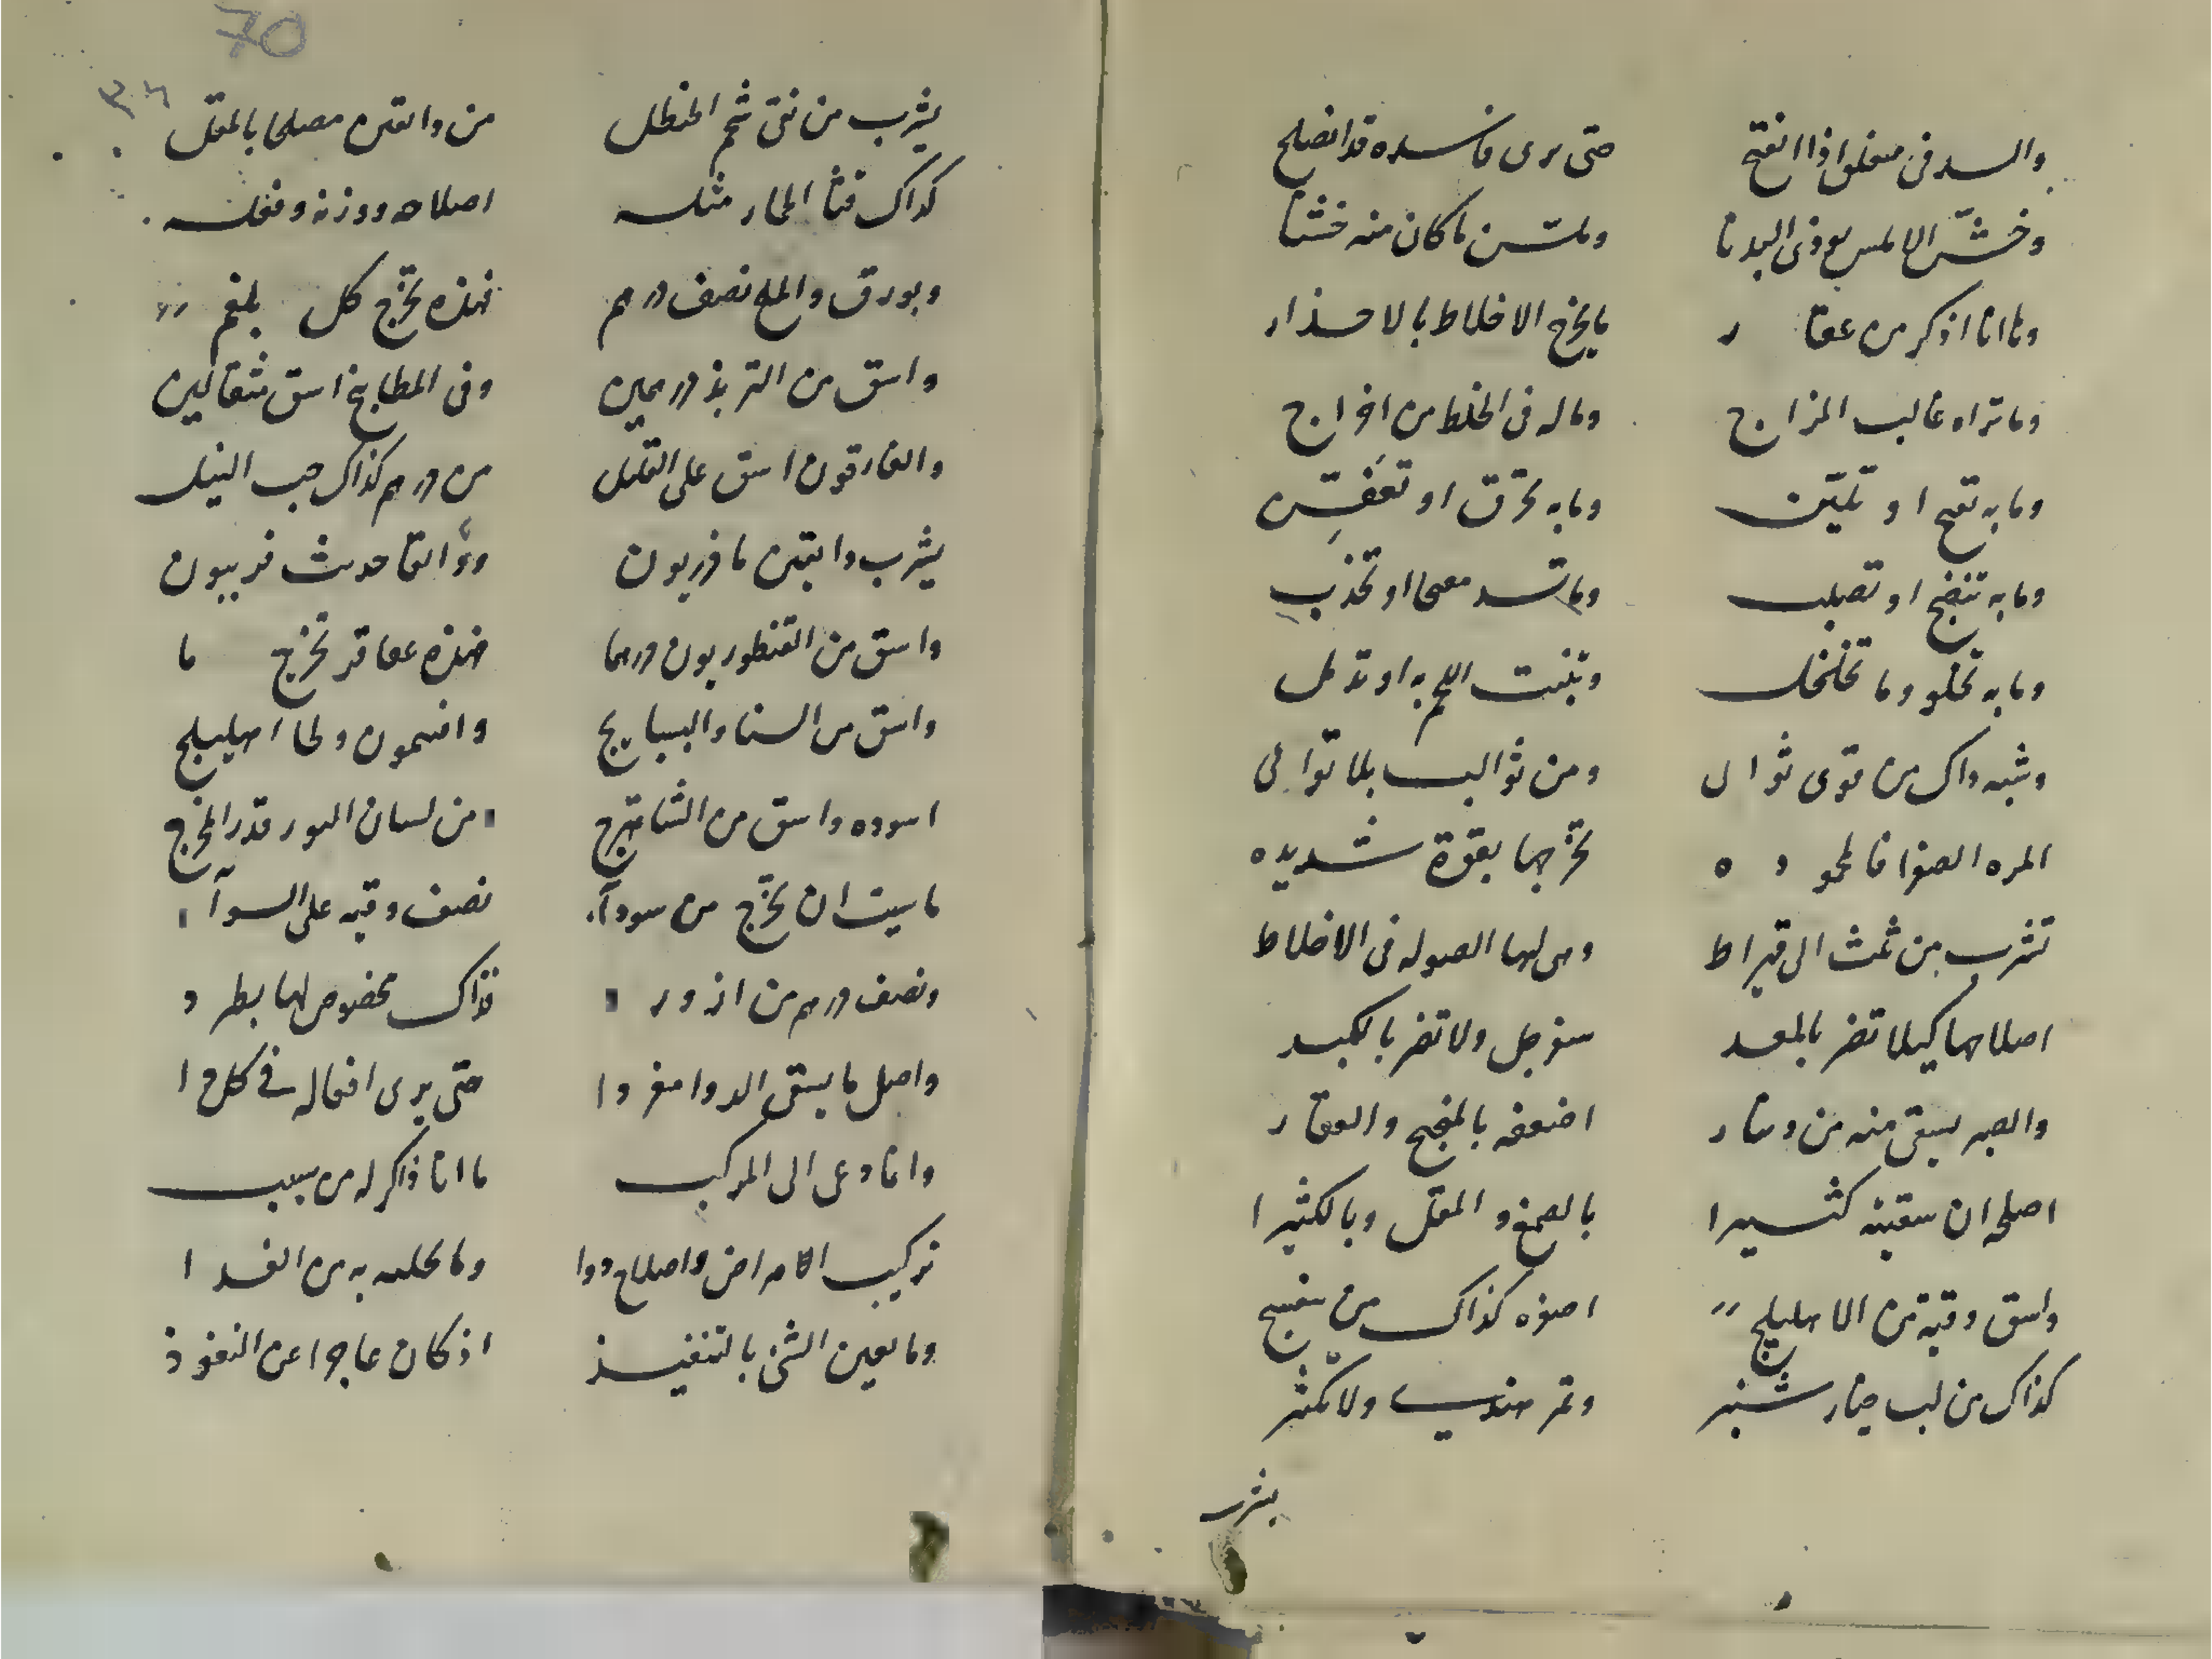 والسد فى مغلق اذا انفتح حتى يرى فاسده قد انصلح
وخشن الاملس يوذى البدنا وملسن ما كان منه خشنا
وما انا اذكر من عقار ما يخرج الاخلاط بالاحدار
وما تراه غالب المزاج وماله فى الخلط من اخراج
وما به تفتح او تليّن وما به تحرق او تعفن
وما به تنضج او تصلب وما تسد معما او تجذب
وما به تجلو وما تخلخل وتنبت اللحم به او تدمل
وشبه ذاك من قوى ثوال ومن ثوالب بلا توالى
المره الصفرا فالمحموده تخرجها بقوة شديده
تشرب من ثمث الى قيراط وهى لها الصوله فى الاخلاط
اصلاحها كيلا تضر بالمعد سفرجل ولا تضر بالكبد
والصبر يسقى منه من دينار اضعفه بالمنجح والعقار
اصلحه ان سقيته كثيرا بالصمغ والمقل وبالكثيرا
واسق وقية من الاهليلج اصفره كذاك من بنفسج
كذاك من لب خيار شنبر وتمر هندى ولا تكثر
يشرب
70
٣٦
يشرب من نقى شحم الحنظل من دانقين مصلحا بالمقل
كذاك قثا الحمار مثله اصلاحه ووزنه وفعله
وبورق والملح نصف درهم فهذه تخرج كل بلغم
واسق من التربذ درهمين وفى المطابيخ اسق مثقالين
والغارقون اسق على القليل من درهم كذاك حب النيل
يشرب دانقين مازريون ودو القا حدث فربيون
واسق من القنطوريون درهما فهذه عقاقر تخرج ما
واسق من السنا والبسبايج وافتيمون ولحا اهليلج
اسوده واسق من الشاهترج من لسان الثور قدر المخرج
ما شيت ان تخرج من سودآء نصف وقيه على السوآء
ونصف درهم من ازورد فذاك مخصوص لها بطرد
واصل ما يسقى الدوا مفردا حتى يرى افعاله فى كل دا
وانما دعى الى المركب ما انا ذاكر له من سبب
تركيب الامراض واصلاح دوا وما تحليه به من الغدا
وما يعين الشئ بالتنفيذ اذ كان عاجزا عن النفوذ